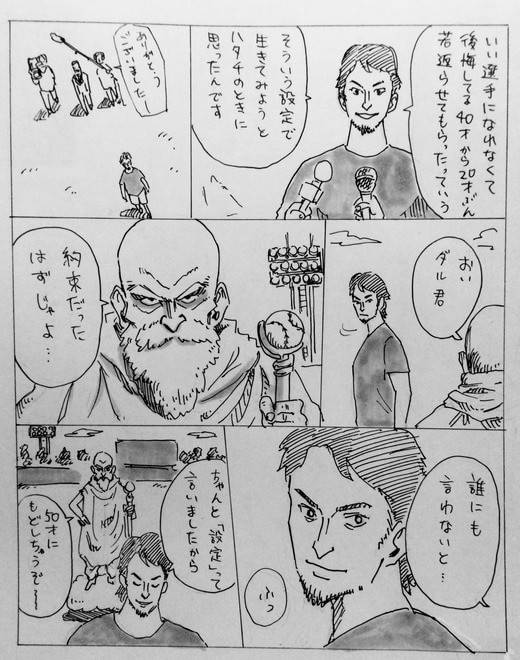 いい選手になれなくて
後悔してる40才から20才ぶん
若返らせてもらったっていう
そういう設定で
生きてみようと
ハタチのときに
思ったんです
ありがとう
ございましたー
おい
ダル君
約束だった
はずじゃよ…
誰にも
言わないと…
ふっ
ちゃんと「設定」って
言いましたから
50才に
もどしちゃうぞ〜